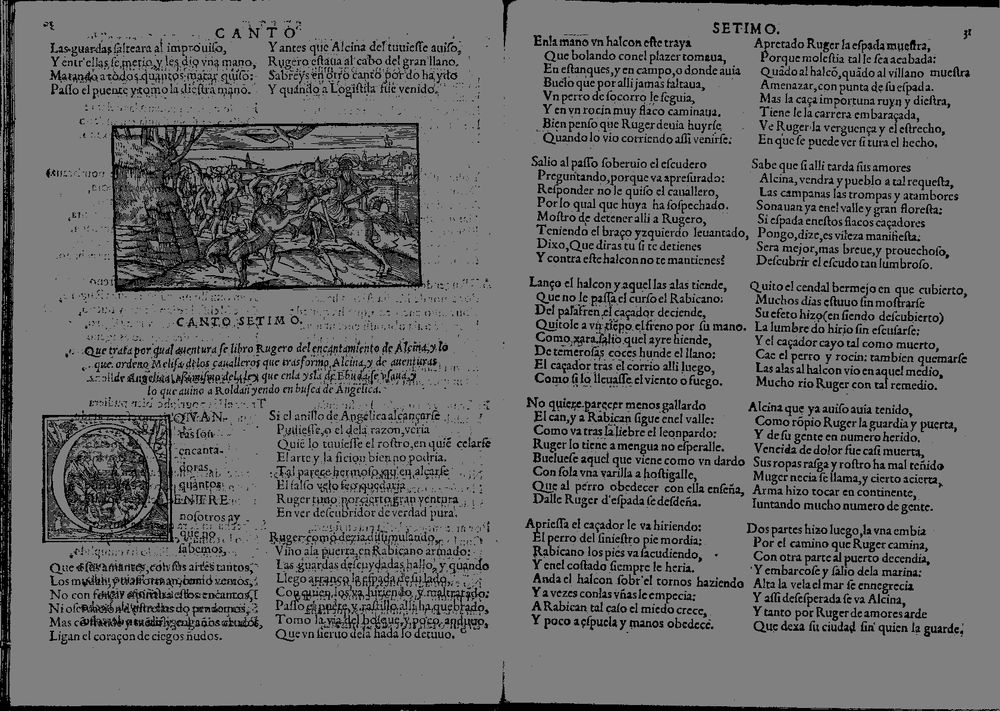 CANTO
Las guardas salteara al improuiso,
Y entr'ellas se metio, y les dio vna mano,
Matando a todos quantos matar quiso:
Passo el puente y tomo la diestra mano.
Y antes que Alcina del tuuiesse auiso,
Rugero estaua al cabo del gran llano.
Sabreys en otro canto por do ha ydo
Y quando a Logistila fue venido.
CANTO SETIMO.
Que trata por qual auentura se libro Rugero del encantamiento de Alcina, y lo
que ordeno Melisa de los caualleros que trasformo Alcina, y de auenturas
de Angelica, del Rey que enla ysla de Ebuda se vsaua, y
lo que auino a Roldan yendo en busca de Angelica.
O QVAN-
tas son
encanta-
doras,
quantos
ENTRE
nosotros ay
que no
sabemos,
Que estas amantes, con sus artes tantos,
Ligan el coraçon de ciegos ñudos.
Si el anillo de Angelica alcançasse
Pudiesse, o el dela razon, veria
Quiē lo tuuiesse el rostro, en quiē celarse
El arte y la ficion bien no podria.
Tal parece hermoso, qu'en alçarse
El falso velo feo quedaria
Ruger tuuo por cierto gran ventura
En ver descubridor de verdad pura.
Ruger como dezia dissimulando,
Vino ala puerta, en Rabicano armado:
Las guardas descuydadas hallo, y quando
Llego arranco la espada de su lado.
Con quien los va hiriendo, y maltratado:
Passo el puēte, y rastillo alli ha quebrado,
Tomo la via del bosque, y poco anduuo,
Que vn sieruo dela hada lo detuuo.
SETIMO.
31
Enla mano vn halcon este traya
Que bolando conel plazer tomaua,
En estanques, y en campo, o donde auia
Buelo que por alli jamas faltaua,
Vn perro de socorro le seguia,
Y en vn rocin muy flaco caminaua.
Bien penso que Ruger deuia huyrse
Quando lo vio corriendo assi venirse.
Salio al passo soberuio el escudero
Preguntando, porque va apresurado:
Responder no le quiso el cauallero,
Por lo qual que huya ha sospechado.
Mostro de detener alli a Rugero,
Teniendo el braço yzquierdo leuantado,
Dixo, Que diras tu si te detienes
Y contra este halcon no te mantienes?
Lanço el halcon y aquel las alas tiende,
Que no le passa el curso el Rabicano:
Del palafren el caçador deciende,
Quitole a vn tiēpo el freno por su mano.
Como xara salio quel ayre hiende,
De temerosas coces hunde el llano:
El caçador tras el corrio alli luego,
Como si lo lleuasse el viento o fuego.
No quiere parecer menos gallardo
El can, y a Rabican sigue enel valle:
Como va tras la liebre el leonpardo:
Ruger lo tiene a mengua no esperalle.
Bueluese aquel que viene como vn dardo
Con sola vna varilla a hostigalle,
Que al perro obedecer con ella enseña,
Dalle Ruger d'espada se desdeña.
Apriessa el caçador le va hiriendo:
El perro del siniestro pie mordia:
Rabicano los pies va sacudiendo,
Y enel costado siempre le heria.
Anda el halcon sobr'el tornos haziendo
Y a vezes conlas vñas le empecia:
A Rabican tal caso el miedo crece,
Y poco a espuela y manos obedece.
Apretado Ruger la espada muestra,
Porque molestia tal le sea acabada:
Quādo al halcō, quādo al villano muestra
Amenazar, con punta de su espada.
Mas la caça importuna ruyn y diestra,
Tiene le la carrera embaraçada,
Ve Ruger la verguença y el estrecho,
En que se puede ver si tura el hecho.
Sabe que si alli tarda sus amores
Alcina, vendra y pueblo a tal requesta,
Las campanas las trompas y atambores
Sonauan ya enel valle y gran floresta:
Si espada enestos flacos caçadores
Pongo, dize, es vileza manifiesta.
Sera mejor, mas breue, y prouechoso,
Descubrir el escudo tan lumbroso.
Quito el cendal bermejo en que cubierto,
Muchos dias estuuo sin mostrarse
Su efeto hizo (en siendo descubierto)
La lumbre do hirio sin escusarse:
Y el caçador cayo tal como muerto,
Cae el perro y rocin: tambien quemarse
Las alas al halcon vio en aquel medio,
Mucho rio Ruger con tal remedio.
Alcina que ya auiso auia tenido,
Como rōpio Ruger la guardia y puerta,
Y de su gente en numero herido.
Vencida de dolor fue casi muerta,
Sus ropas rasga y rostro ha mal teñido
Muger necia se llama, y cierto acierta,
Arma hizo tocar en continente,
Iuntando mucho numero de gente.
Dos partes hizo luego, la vna embia
Por el camino que Ruger camina,
Con otra parte al puerto decendia,
Y embarcose y salio dela marina:
Alta la vela el mar se ennegrecia
Y assi desesperada se va Alcina,
Y tanto por Ruger de amores arde
Que dexa su ciudad sin quien la guarde.